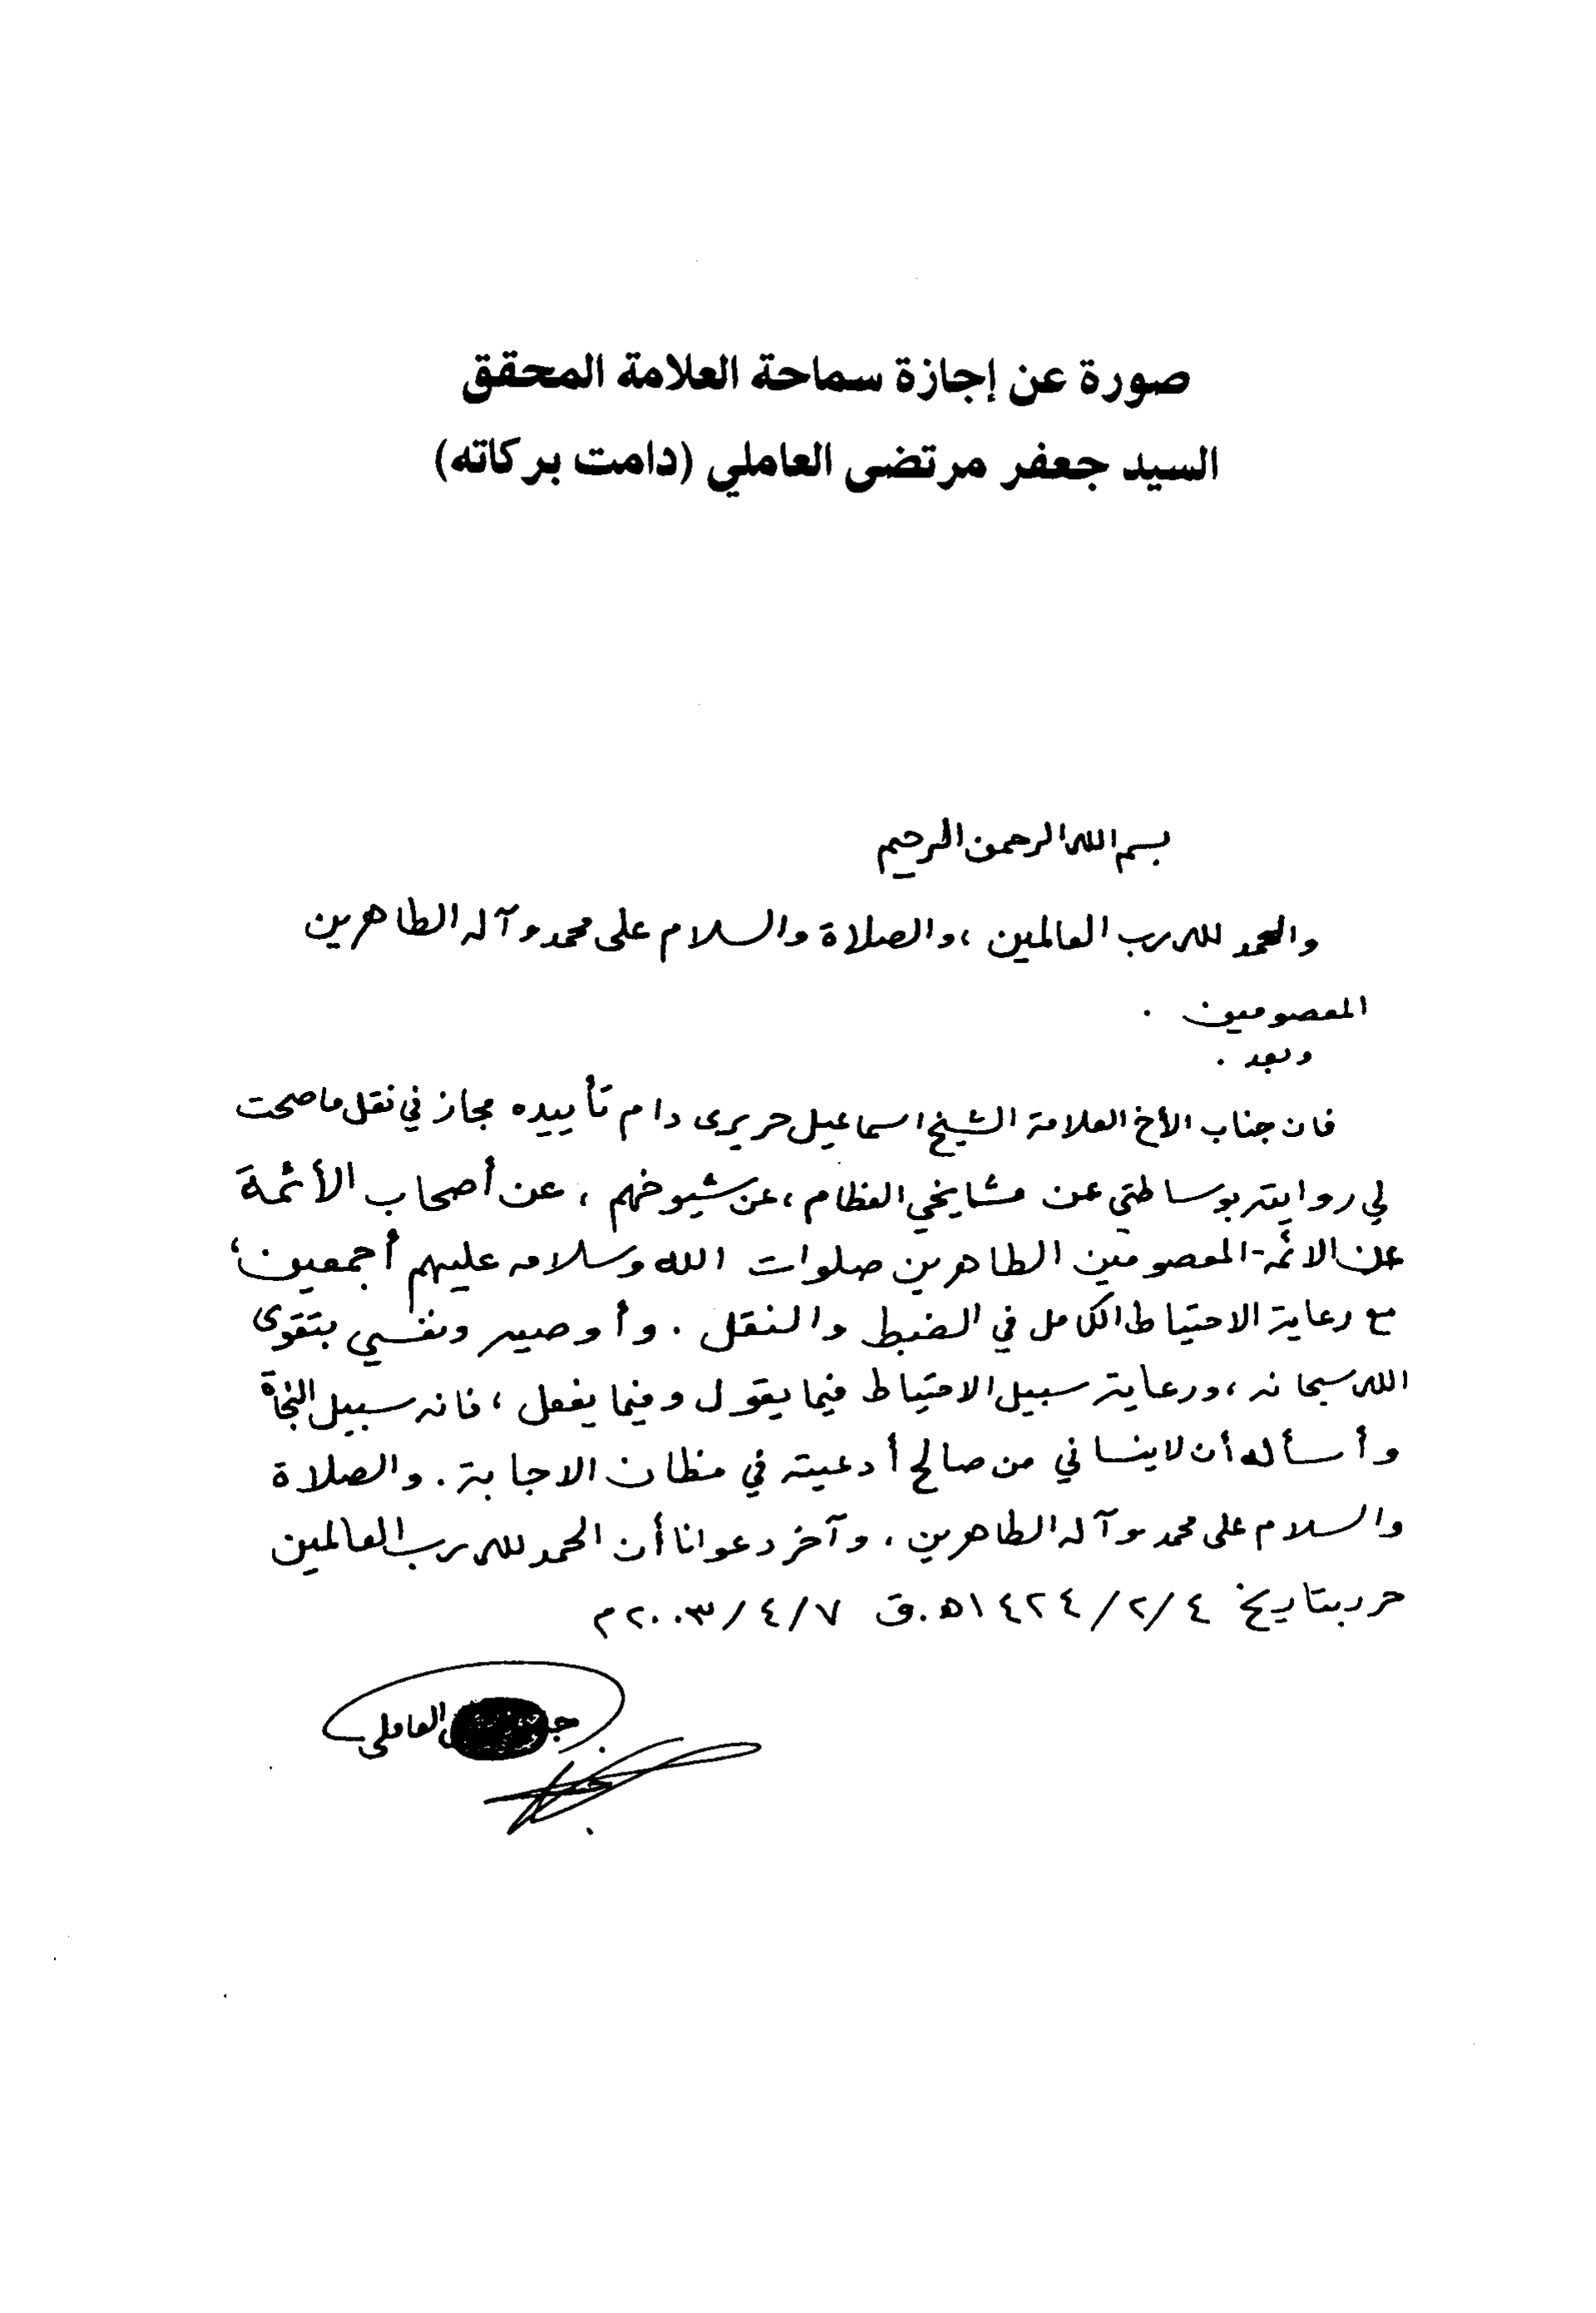 صورة عن إجازة سماحة العلامة المحقق
السيد جعفر مرتضى العاملي (دامت بركاته)
بسم الله الرحمن الرحيم
والحمد لله رب العالمين ، والصلاة والسلام على محمد وآله الطاهرين
المعصومين .
وبعد .
فان جناب الأخ العلامة الشيخ اسماعيل حريري دام تأييده مجاز في نقل ما صحت
لي روايته بوساطتي عن مشايخي العظام ، عن شيوخهم ، عن أصحاب الأئمة
عن الائمة المعصومين الطاهرين صلوات الله وسلامه عليهم أجمعين ،
مع رعاية الاحتياط الكامل في الضبط والنقل . وأوصيه ونفسي بتقوى
الله سبحانه ، ورعاية سبيل الاحتياط فيما يقول وفيما يفعل ، فانه سبيل النجاة
وأسأله أن لا ينساني من صالح أدعيته في مظان الاجابة . والصلاة
والسلام على محمد وآله الطاهرين ، وآخر دعوانا أن الحمد لله رب العالمين
حرر بتاريخ ٤/٢/١٤٢٤ه.ق ٧/٤/٢٠٠٣م
العاملي